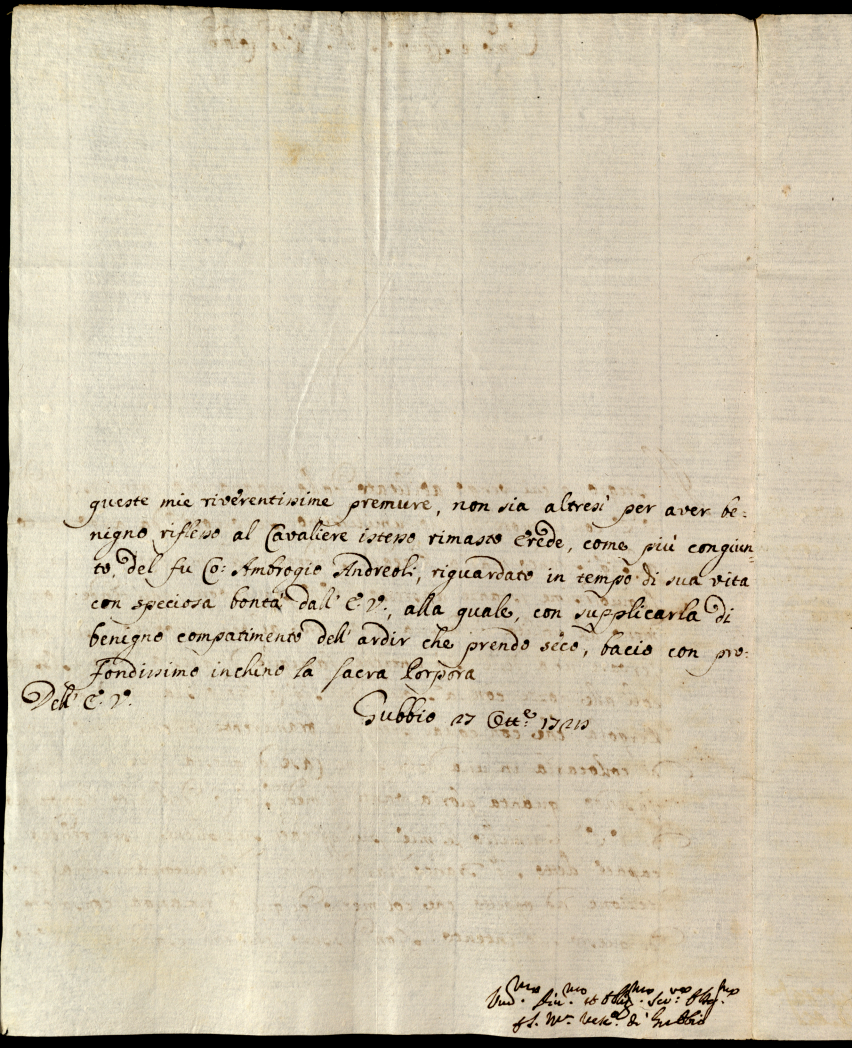 queste mie riverentissime premure, non sia altresi per aver be:
nigno riflesso al Cavaliere istesso rimasto Erede, come più congiun=
to, del fu Co: Ambrogio Andreoli, riguardato in tempo di sua vita
con speciosa bontà dall' E. V., alla quale, con supplicarla di
benigno compatimento dell' ardir che prendo seco, bacio con pro:
fondissimo inchino la Sacra Porpora
Dell' E. V.
Gubbio 27 Ott.e
di Gubbio